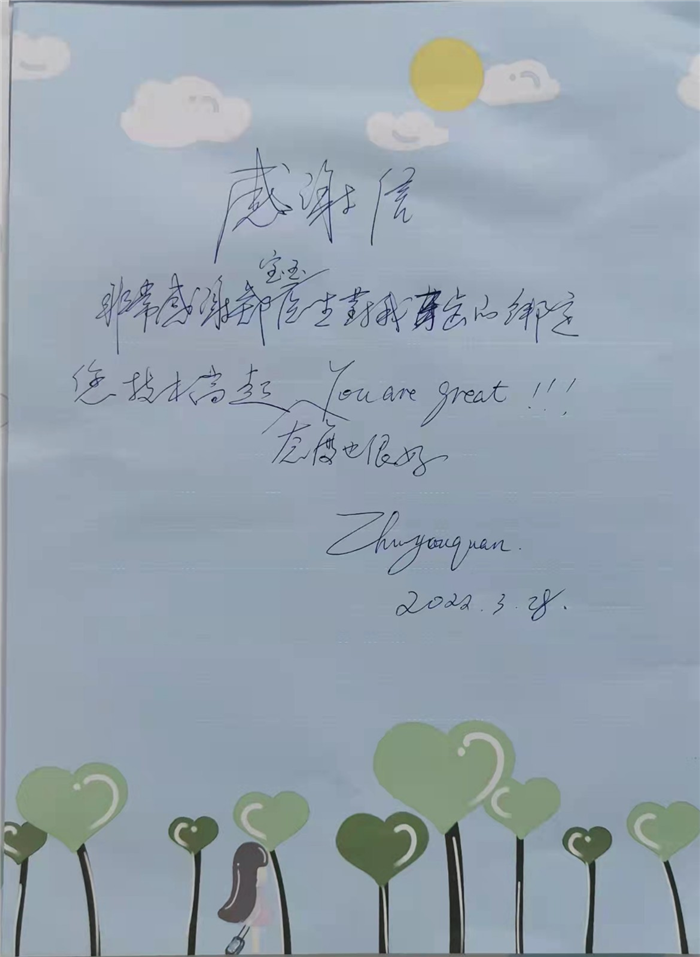 感谢信
非常感谢郑宝玉医生对我牙齿的绑定
您技术高超 态度也很好 You are great!!!
Zhuyouquan.
2022.3.28.